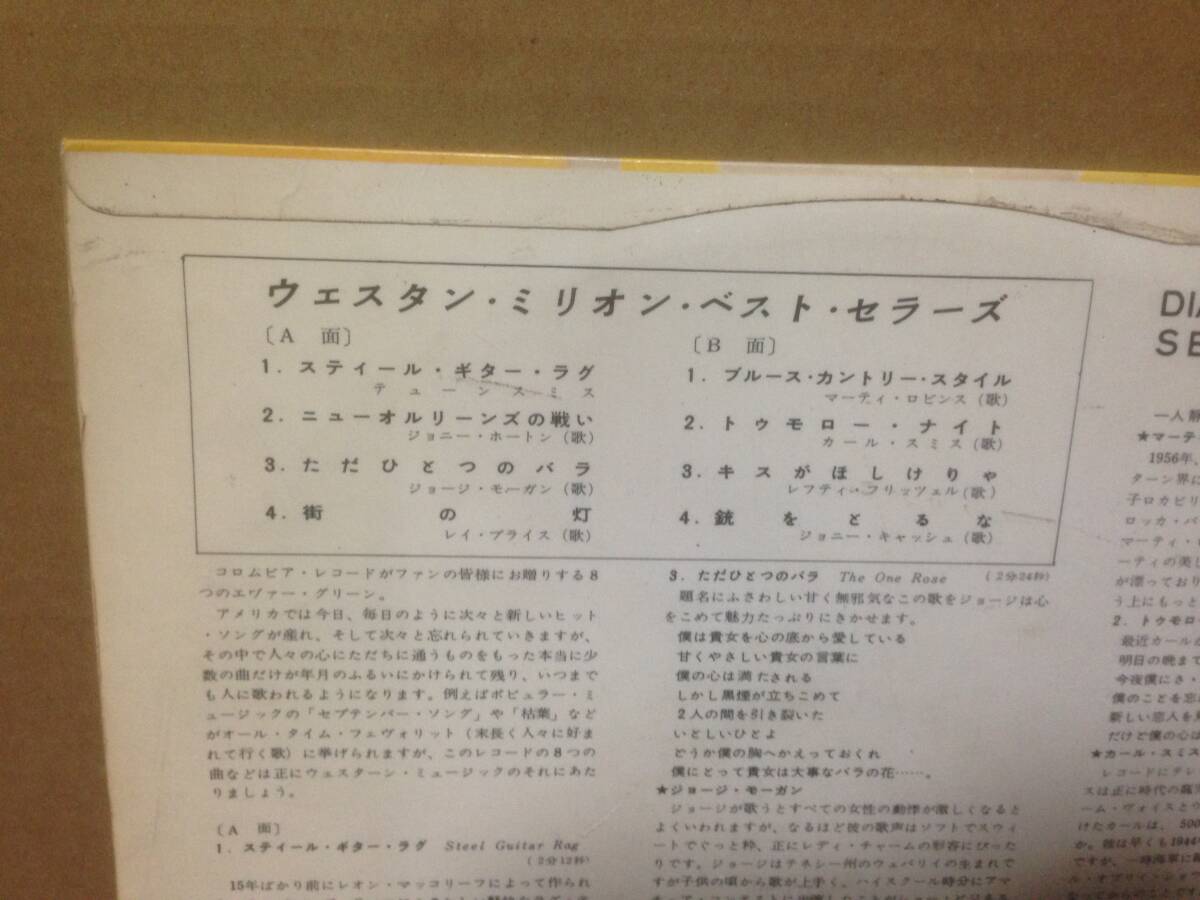 ウェスタン・ミリオン・ベスト・セラーズ
〔A 面〕
1. スティール・ギター・ラグ
テューンスミス
2. ニューオルリーンズの戦い
ジョニー・ホートン(歌)
3. ただひとつのバラ
ジョージ・モーガン(歌)
4. 街の灯
レイ・プライス(歌)
〔B 面〕
1. ブルース・カントリー・スタイル
マーティ・ロビンス(歌)
2. トゥモロー・ナイト
カール・スミス(歌)
3. キスがほしけりゃ
レフティ・フリッツェル(歌)
4. 銃をとるな
ジョニー・キャッシュ(歌)
コロムビア・レコードがファンの皆様にお贈りする8
つのエヴァー・グリーン。
アメリカでは今日、毎日のように次々と新しいヒット
・ソングが産れ、そして次々と忘れられていきますが、
その中で人々の心にただちに通うものをもった本当に少
数の曲だけが年月のふるいにかけられて残り、いつまで
も人に歌われるようになります。例えばポピュラー・ミ
ュージックの「セプテンバー・ソング」や「枯葉」など
がオール・タイム・フェヴォリット(末長く人々に好ま
れて行く歌)に挙げられますが、このレコードの8つの
曲などは正にウェスターン・ミュージックのそれにあた
りましょう。
〔A 面〕
1. スティール・ギター・ラグ Steel Guitar Rag
(2分12秒)
15年ばかり前にレオン・マッコリーフによって作られ
3. ただひとつのバラ The One Rose (2分24秒)
題名にふさわしい甘く無邪気なこの歌をジョージは心
をこめて魅力たっぷりにきかせます。
僕は貴女を心の底から愛している
甘くやさしい貴女の言葉に
僕の心は満たされる
しかし黒煙が立ちこめて
2人の間を引き裂いた
いとしいひとよ
どうか僕の胸へかえっておくれ
僕にとって貴女は大事なバラの花……。
★ジョージ・モーガン
ジョージが歌うとすべての女性の動悸が激しくなると
よくいわれますが、なるほど彼の歌声はソフトでスウィ
ートでぐっと粋、正にレディ・チャームの形容にぴった
りです。ジョージはテネシー州のウェバリイの生まれで
すが子供の頃から歌が上手く、ハイスクール時分にアマ
DIA
SE
一人
★マーテ
1956年、
ターン界に
子ロカビリ
ロッカ・バ
マーティ・ロ
ーティの美し
が漂っており
う上にもっと
2. トゥモロー
最近カールが
明日の晩まで
今夜僕にさ・
僕のことを忘
新しい恋人を
だけど僕の心は
★カール・スミス
レコードにテレ
スは正に時代の
ーム・ヴォイスと
けたカールは、500
か。彼は早くも1944
ですが、一時海軍に